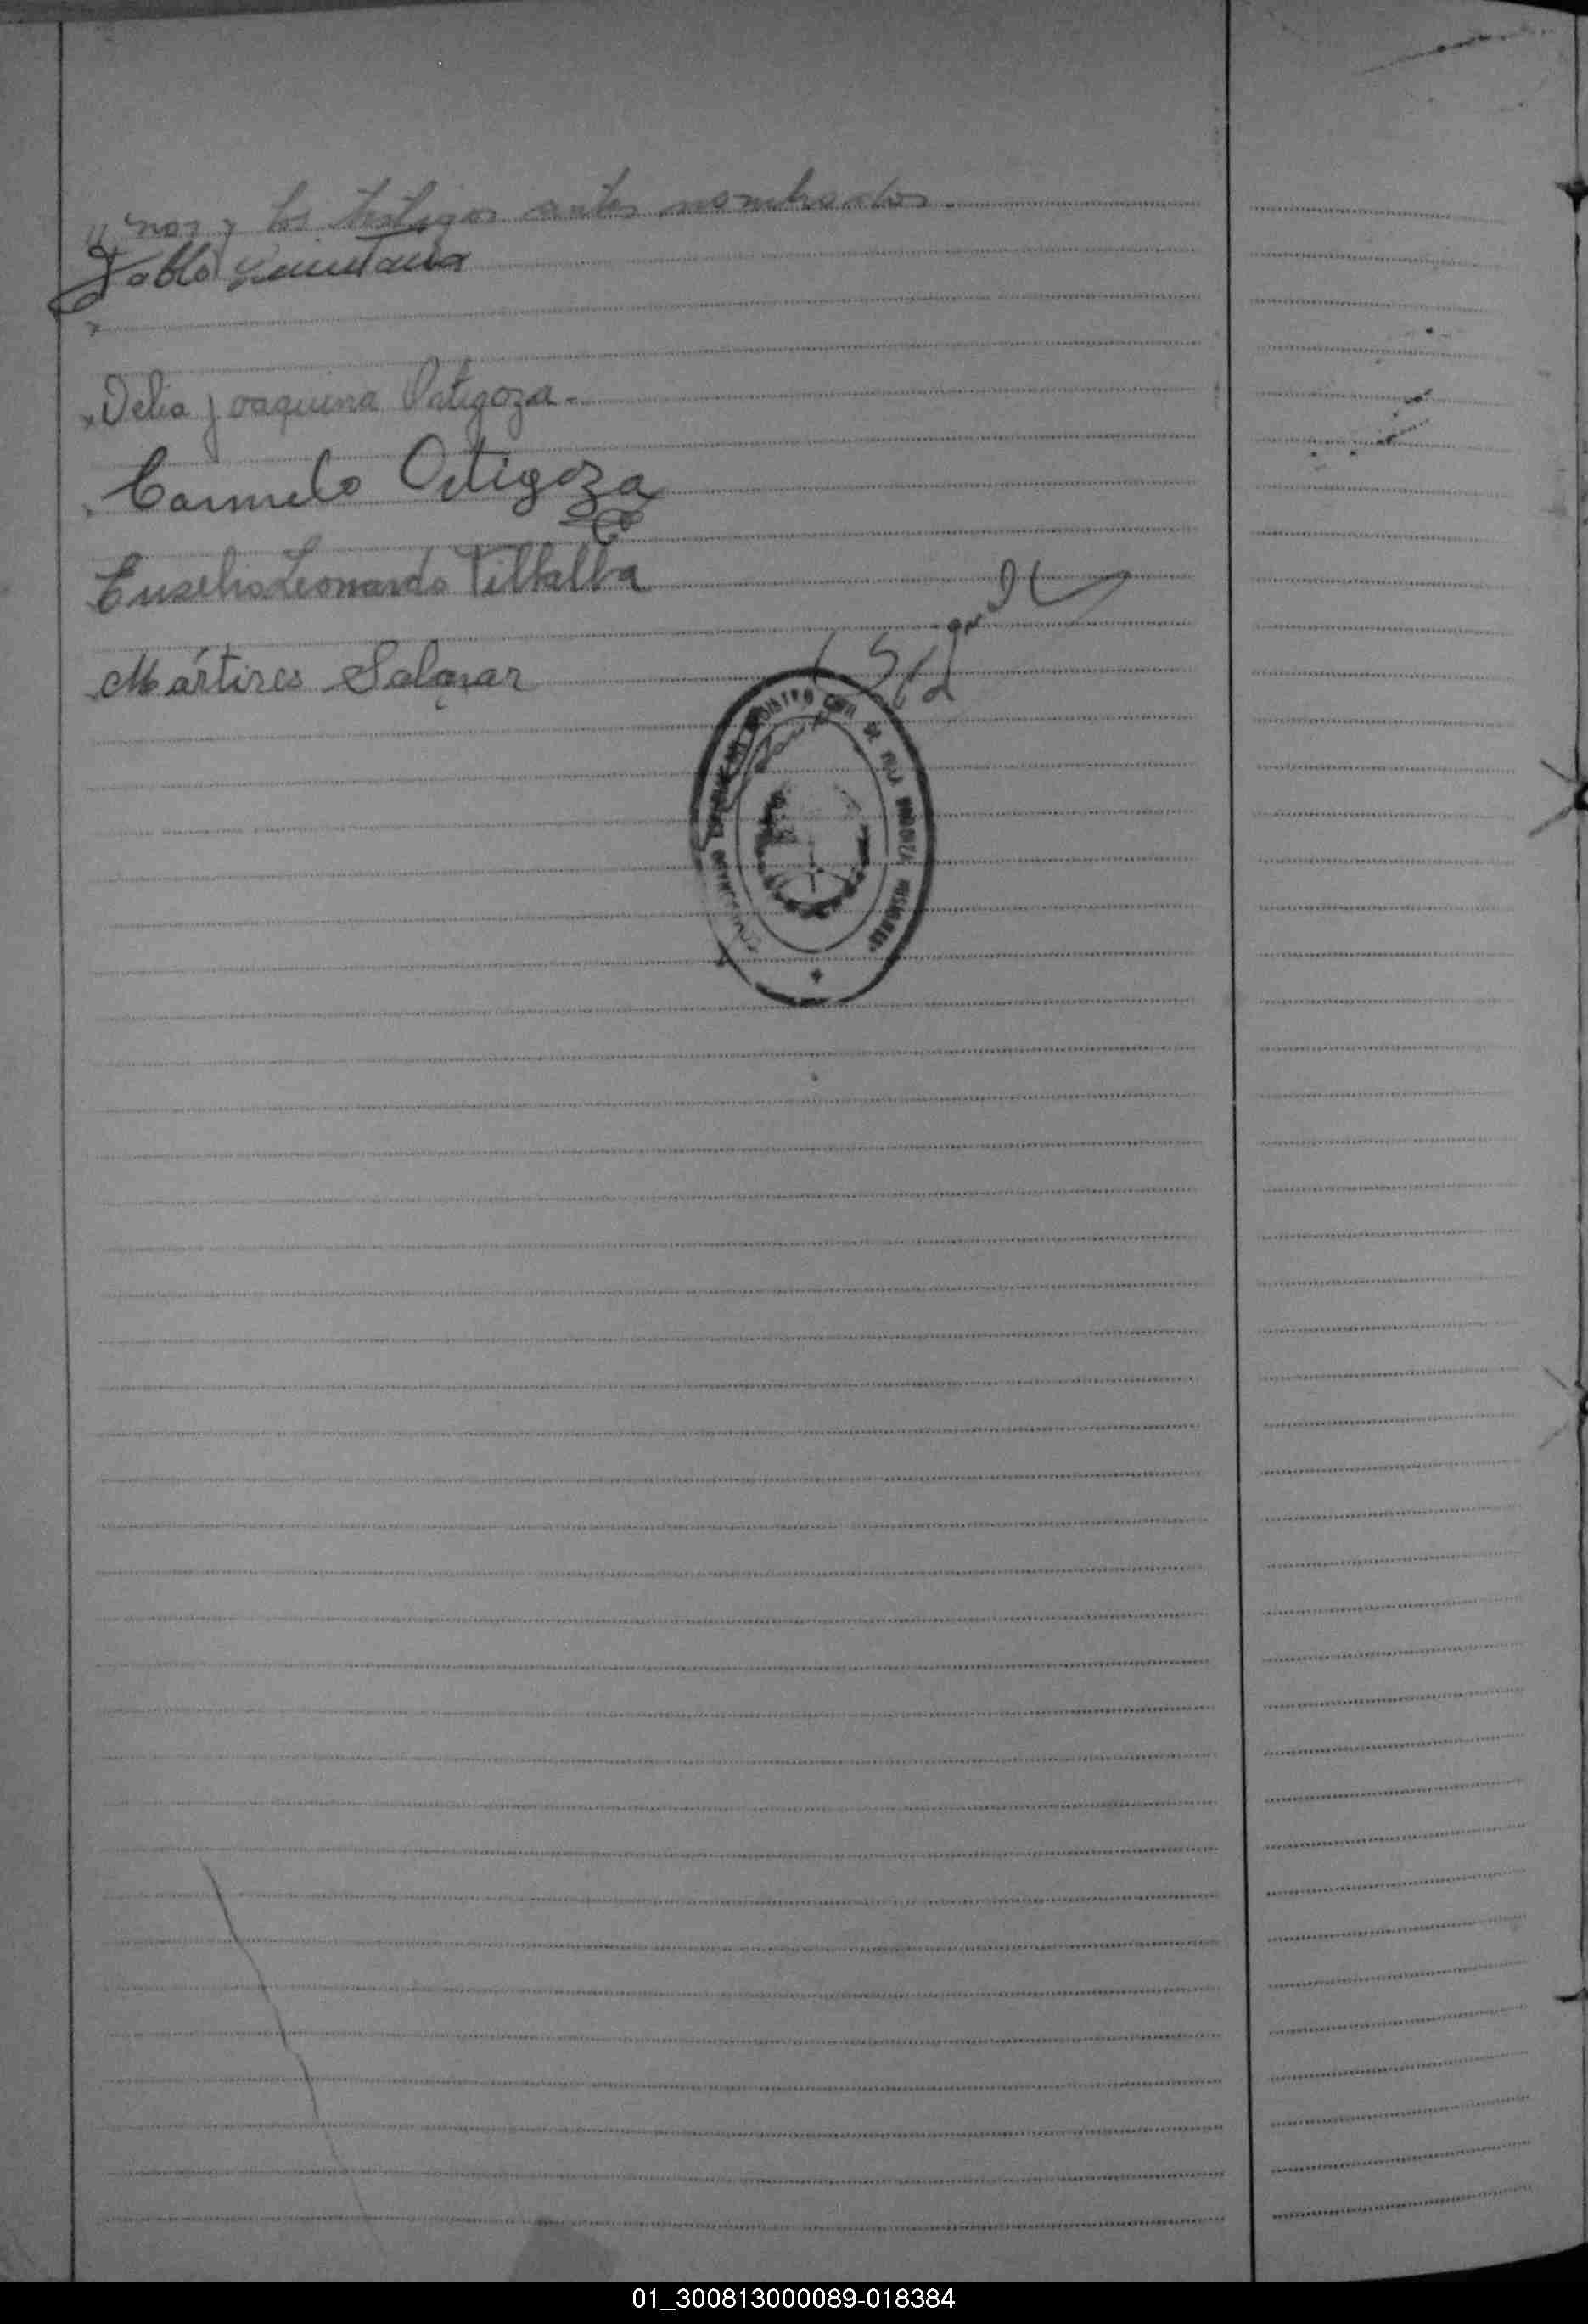 " nos y los testigos antes nombrados.
Pablo Quintana
x
x Delia Joaquina Ortigoza.
Carmelo Ortigoza
Eusebio Leonardo Villalba
Mártires Salazar
REGISTRO CIVIL DE VILLA MISIONES
01_300813000089-018384